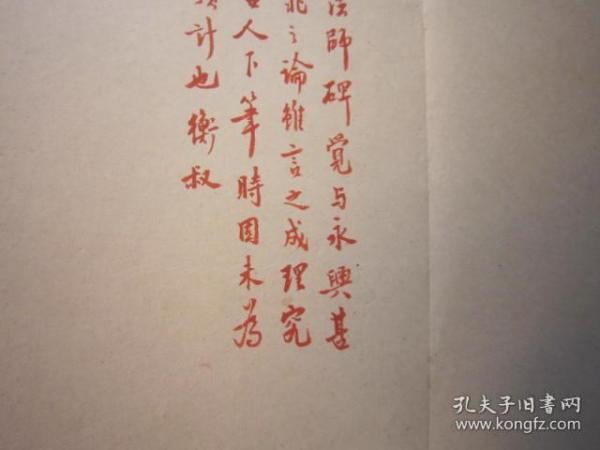 法師碑覚与永興甚
北之論雖言之成理究
古人下筆時固未為
計也衡叔
孔夫子旧書网
www.kongfz.com